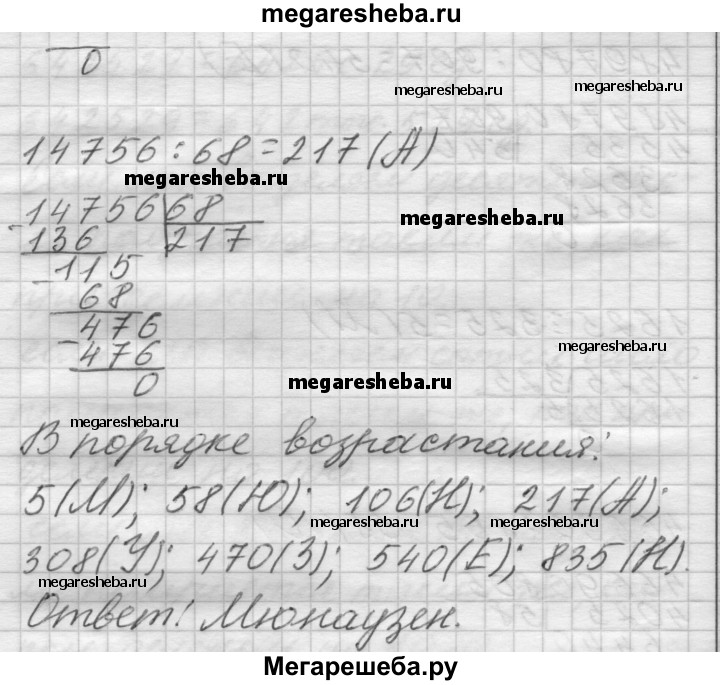 megaresheba.ru
0
megaresheba.ru
megaresheba.ru
14756:68=217(А)
megaresheba.ru
14756 68
megaresheba.ru
- 136 217
- 115
megaresheba.ru
68
476
megaresheba.ru
- 476
0
megaresheba.ru
megaresheba.ru
В порядке возрастания:
5(М); 58(Ю); 106(Н); 217(А);
megaresheba.ru megaresheba.ru
308(У); 470(З); 540(Е); 835(Н).
megaresheba.ru megaresheba.ru
Ответ: Мюнаузен.
Мегарешеба.ру